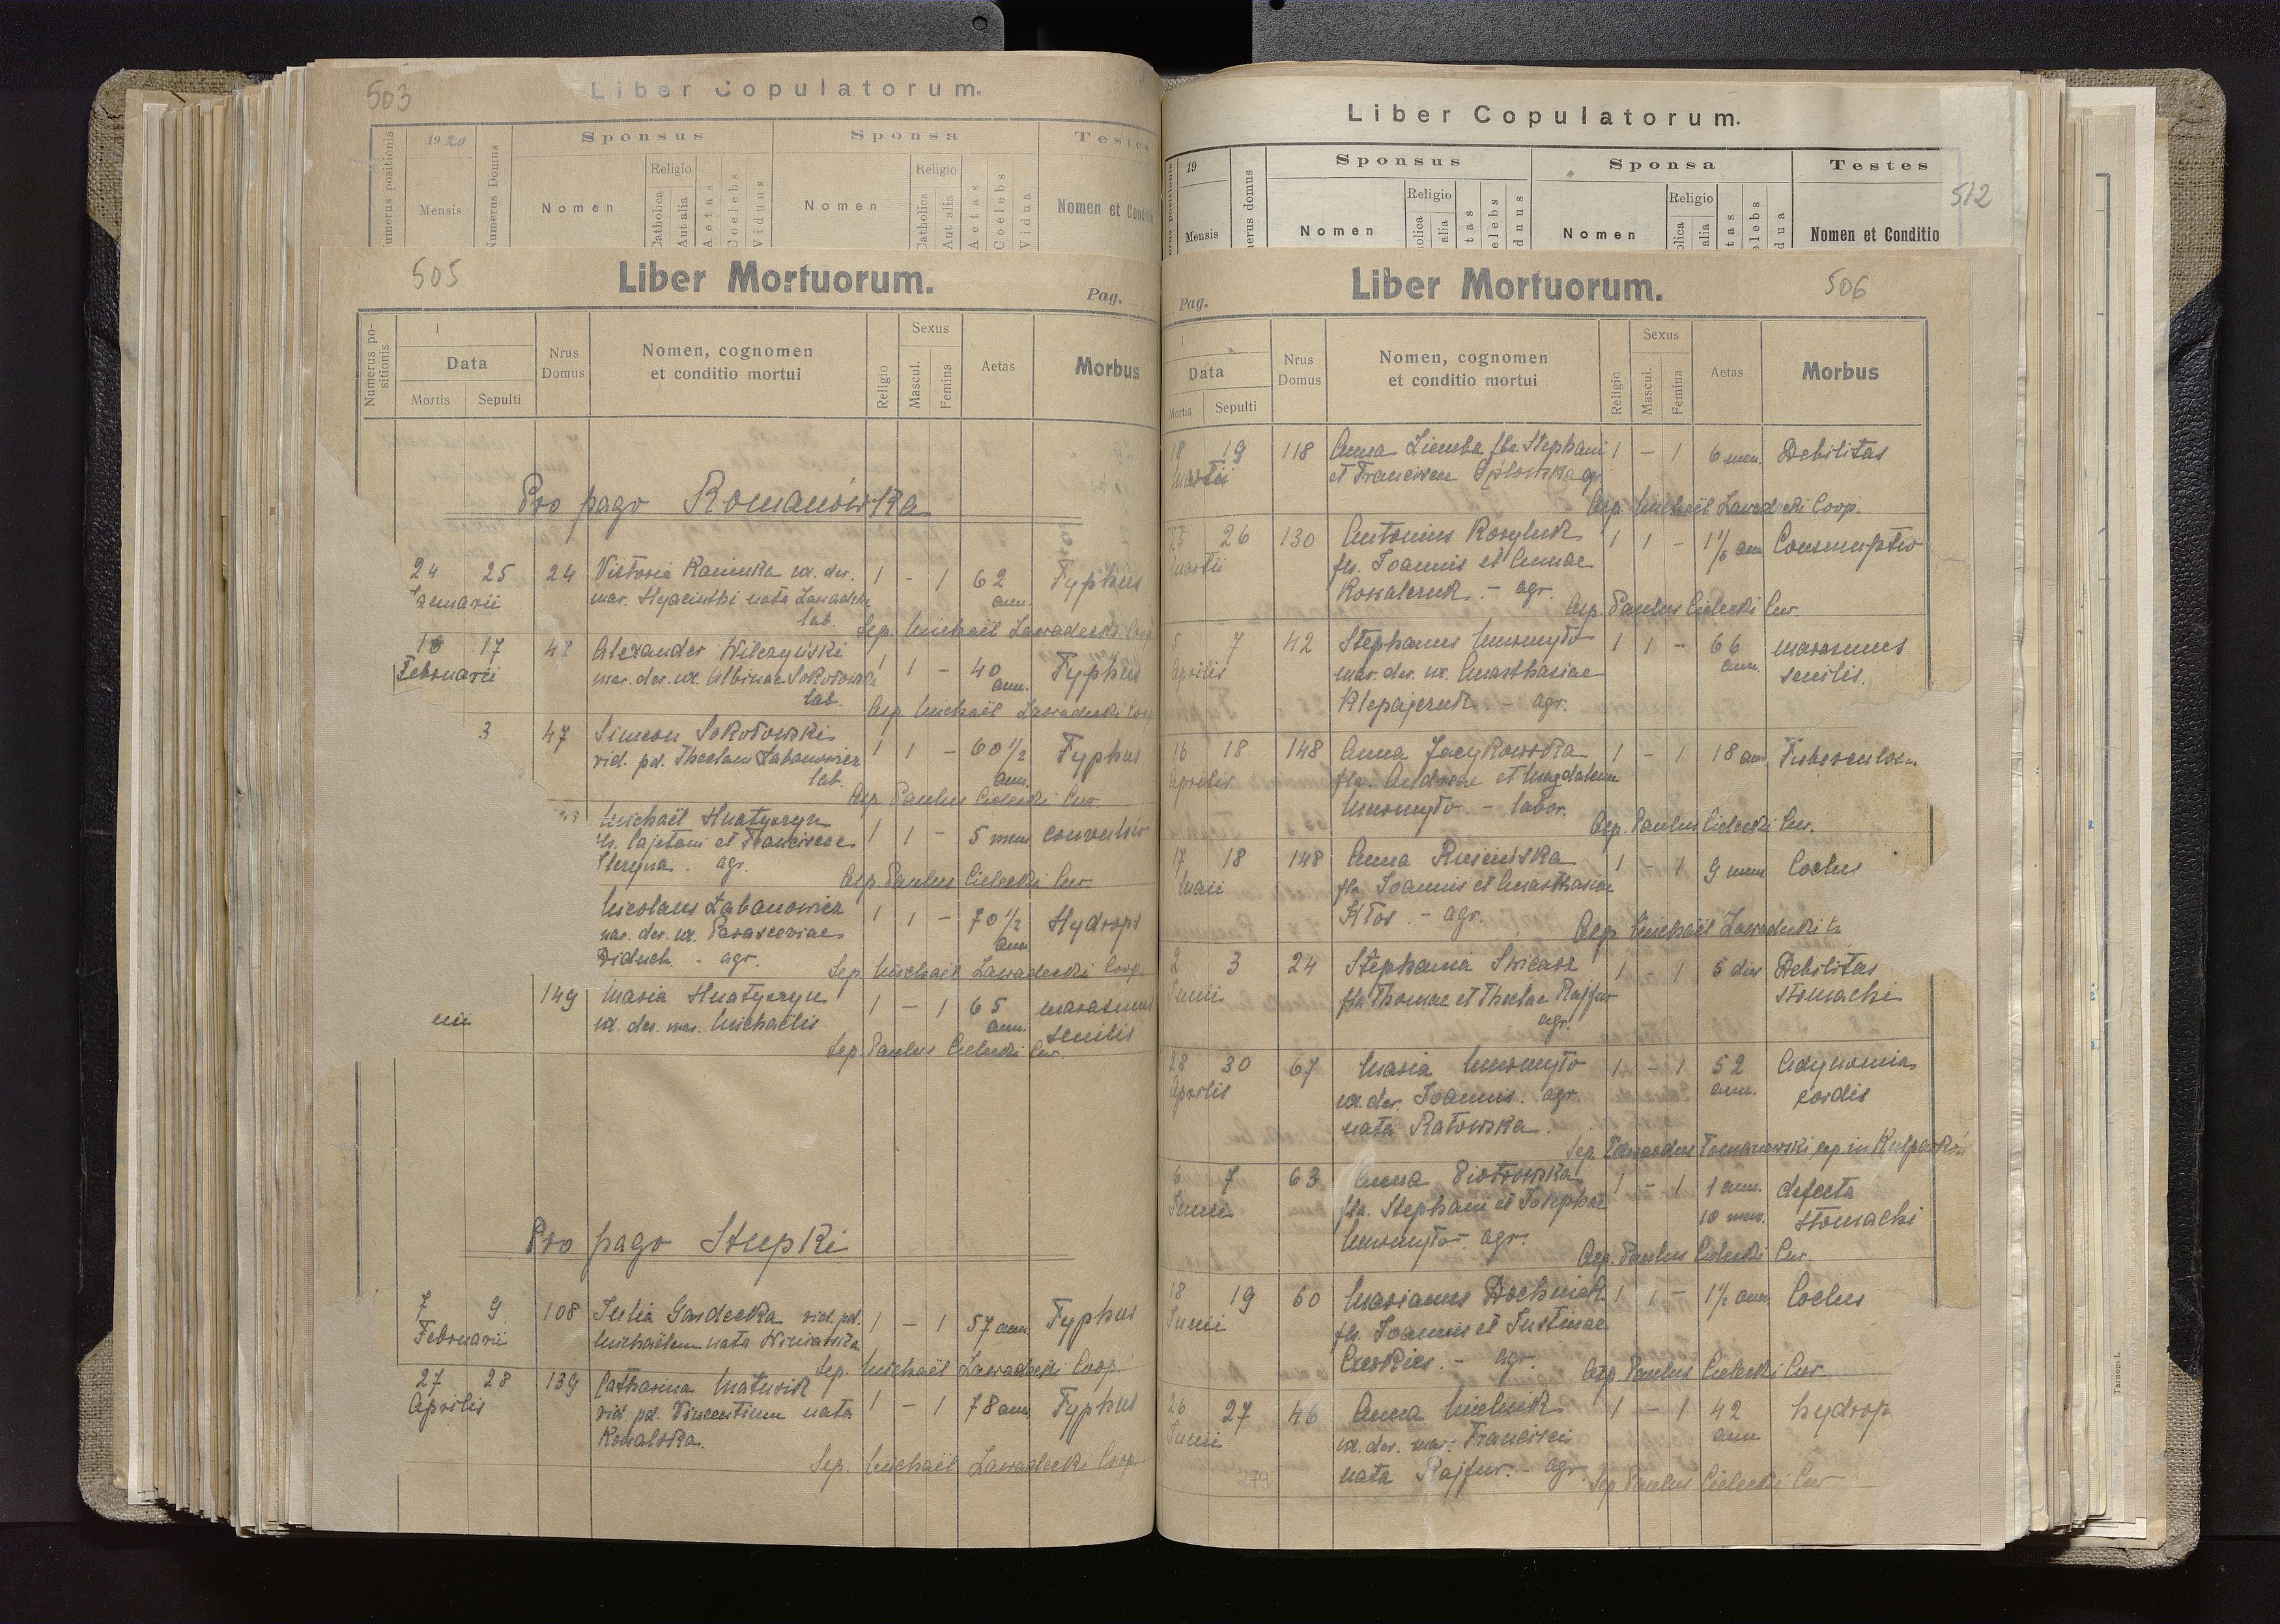 503
Liber Copulatorum.
Numerus positionis
1920
Mensis
Numerus Domus
Sponsus
Nomen
Religio
Catholica
Aut alia
Aetas
Coelebs
Viduus
Sponsa
Nomen
Religio
Catholica
Aut alia
Aetas
Coelebs
Vidua
Testes
Nomen et Condi
505
Liber Mortuorum.
Pag.
Numerus positionis
1
Data
Mortis Sepulti
Nrus Domus
Nomen, cognomen
et conditio mortui
Religio
Sexus
Mascul.
Femina
Aetas
Morbus
Pro pago Romanówka
24 25 24 Victoria Kaminka ux. der. 1 - 1 62 Typhus
anuarii mar. Hyacinthi nata Zawadzka ann.
lab. Sep. Michaël Zawadecki Coop
16 17 48 Alexander Wilczyński 1 1 - 40 Typhus
Februarii mar. der. ux. Albinae Sokołowska ann.
lab. Sep. Michaël Zawadecki Coop
3 47 Simeon Sokołowski 1 1 - 60 1/2 Typhus
vid. pd. Theclam Łabanowicz ann.
lab. Sep. Paulus Cielecki Cur.
Michaël Hnatyszyn 1 1 - 5 mens convulsio
fls. Cajetani et Franciscae
agr. Sep. Paulus Cielecki Cur.
Nicolaus Łabanowicz 1 1 - 70 1/2 Hydrops
mar. der. ux. Parasceviae ann.
Diduch - agr. Sep. Michaël Zawadecki Coop.
149 Maria Hnatyszyn 1 - 1 65 marasmus
nii ux. der. mar. Michaelis ann. senilis
Sep. Paulus Cielecki Cur.
Pro pago Stupki
7 9 108 Julia Gardecka vid. pd. 1 - 1 57 ann. Typhus
Februarii Michaëlem nata Winiarska
Sep. Michaël Zawadecki Coop.
27 28 139 Catharina Matusik 1 - 1 78 ann. Typhus
Aprilis vid. pd. Vincentium nata
Kowalska.
Sep. Michaël Zawadecki Coop
Liber Copulatorum.
19
Mensis
Sponsus
Nomen
Religio
Sponsa
Nomen
Religio
Testes
Nomen et Conditio
512
Pag.
Liber Mortuorum.
506
1
Data
Mortis Sepulti
Nrus Domus
Nomen, cognomen
et conditio mortui
Religio
Sexus
Mascul.
Femina
Aetas
Morbus
18 19 118 Anna Ziemba fla Stephani 1 - 1 6 men. Debilitas
Martii et Franciscae agr.
Sep. Michaël Zawadecki Coop.
25 26 130 Antonius Kosyluk 1 1 - 1 1/6 ann Consumptio
Martii fls. Joannis et Annae
Kowalczuk. - agr. Sep. Paulus Cielecki Cur.
5 7 42 Stephanus Murmyło 1 1 - 66 marasmus
Aprilis mar. der. ux. Anasthasiae ann. senilis.
Klepajczuk. - agr.
16 18 148 Anna Jacykowska 1 - 1 18 ann Tuberculos
Aprilis fla. Andreae et Magdalena
Murmyło - labor. Sep. Paulus Cielecki Cur.
17 18 148 Anna Rusińska 1 - 1 9 mens Coclus
Maii fla Joannis et Anasthasiae
Kłos. - agr. Sep. Michaël Zawadecki C
2 3 24 Stephania Świcarz 1 - 1 5 dies Debilitas
Junii fla Thomae et Theclae Rajfur stomachi
agr.
28 30 67 Maria Murmyło 1 - 1 52 Adynamia
Aprilis ux. der. Joannis. agr. ann. cordis
nata Ratowska.
Sep. Tomanowski in Kulparków
6 7 63 Anna Piotrowska 1 - 1 1 ann. defecta
Junii fla. Stephani et Josephae 10 men. stomachi
Murmyło. agr. Sep. Paulus Cielecki Cur.
18 19 60 Marianus Dochniak 1 1 - 1 1/2 ann Coclus
Junii fls. Joannis et Justinae
agr. Sep. Paulus Cielecki Cur.
26 27 46 Anna Mielnik 1 - 1 42 hydrop
Junii ux. der. mar. Francisci ann
nata Rajfur. - agr. Sep. Paulus Cielecki Cur
279
Tarnopol.